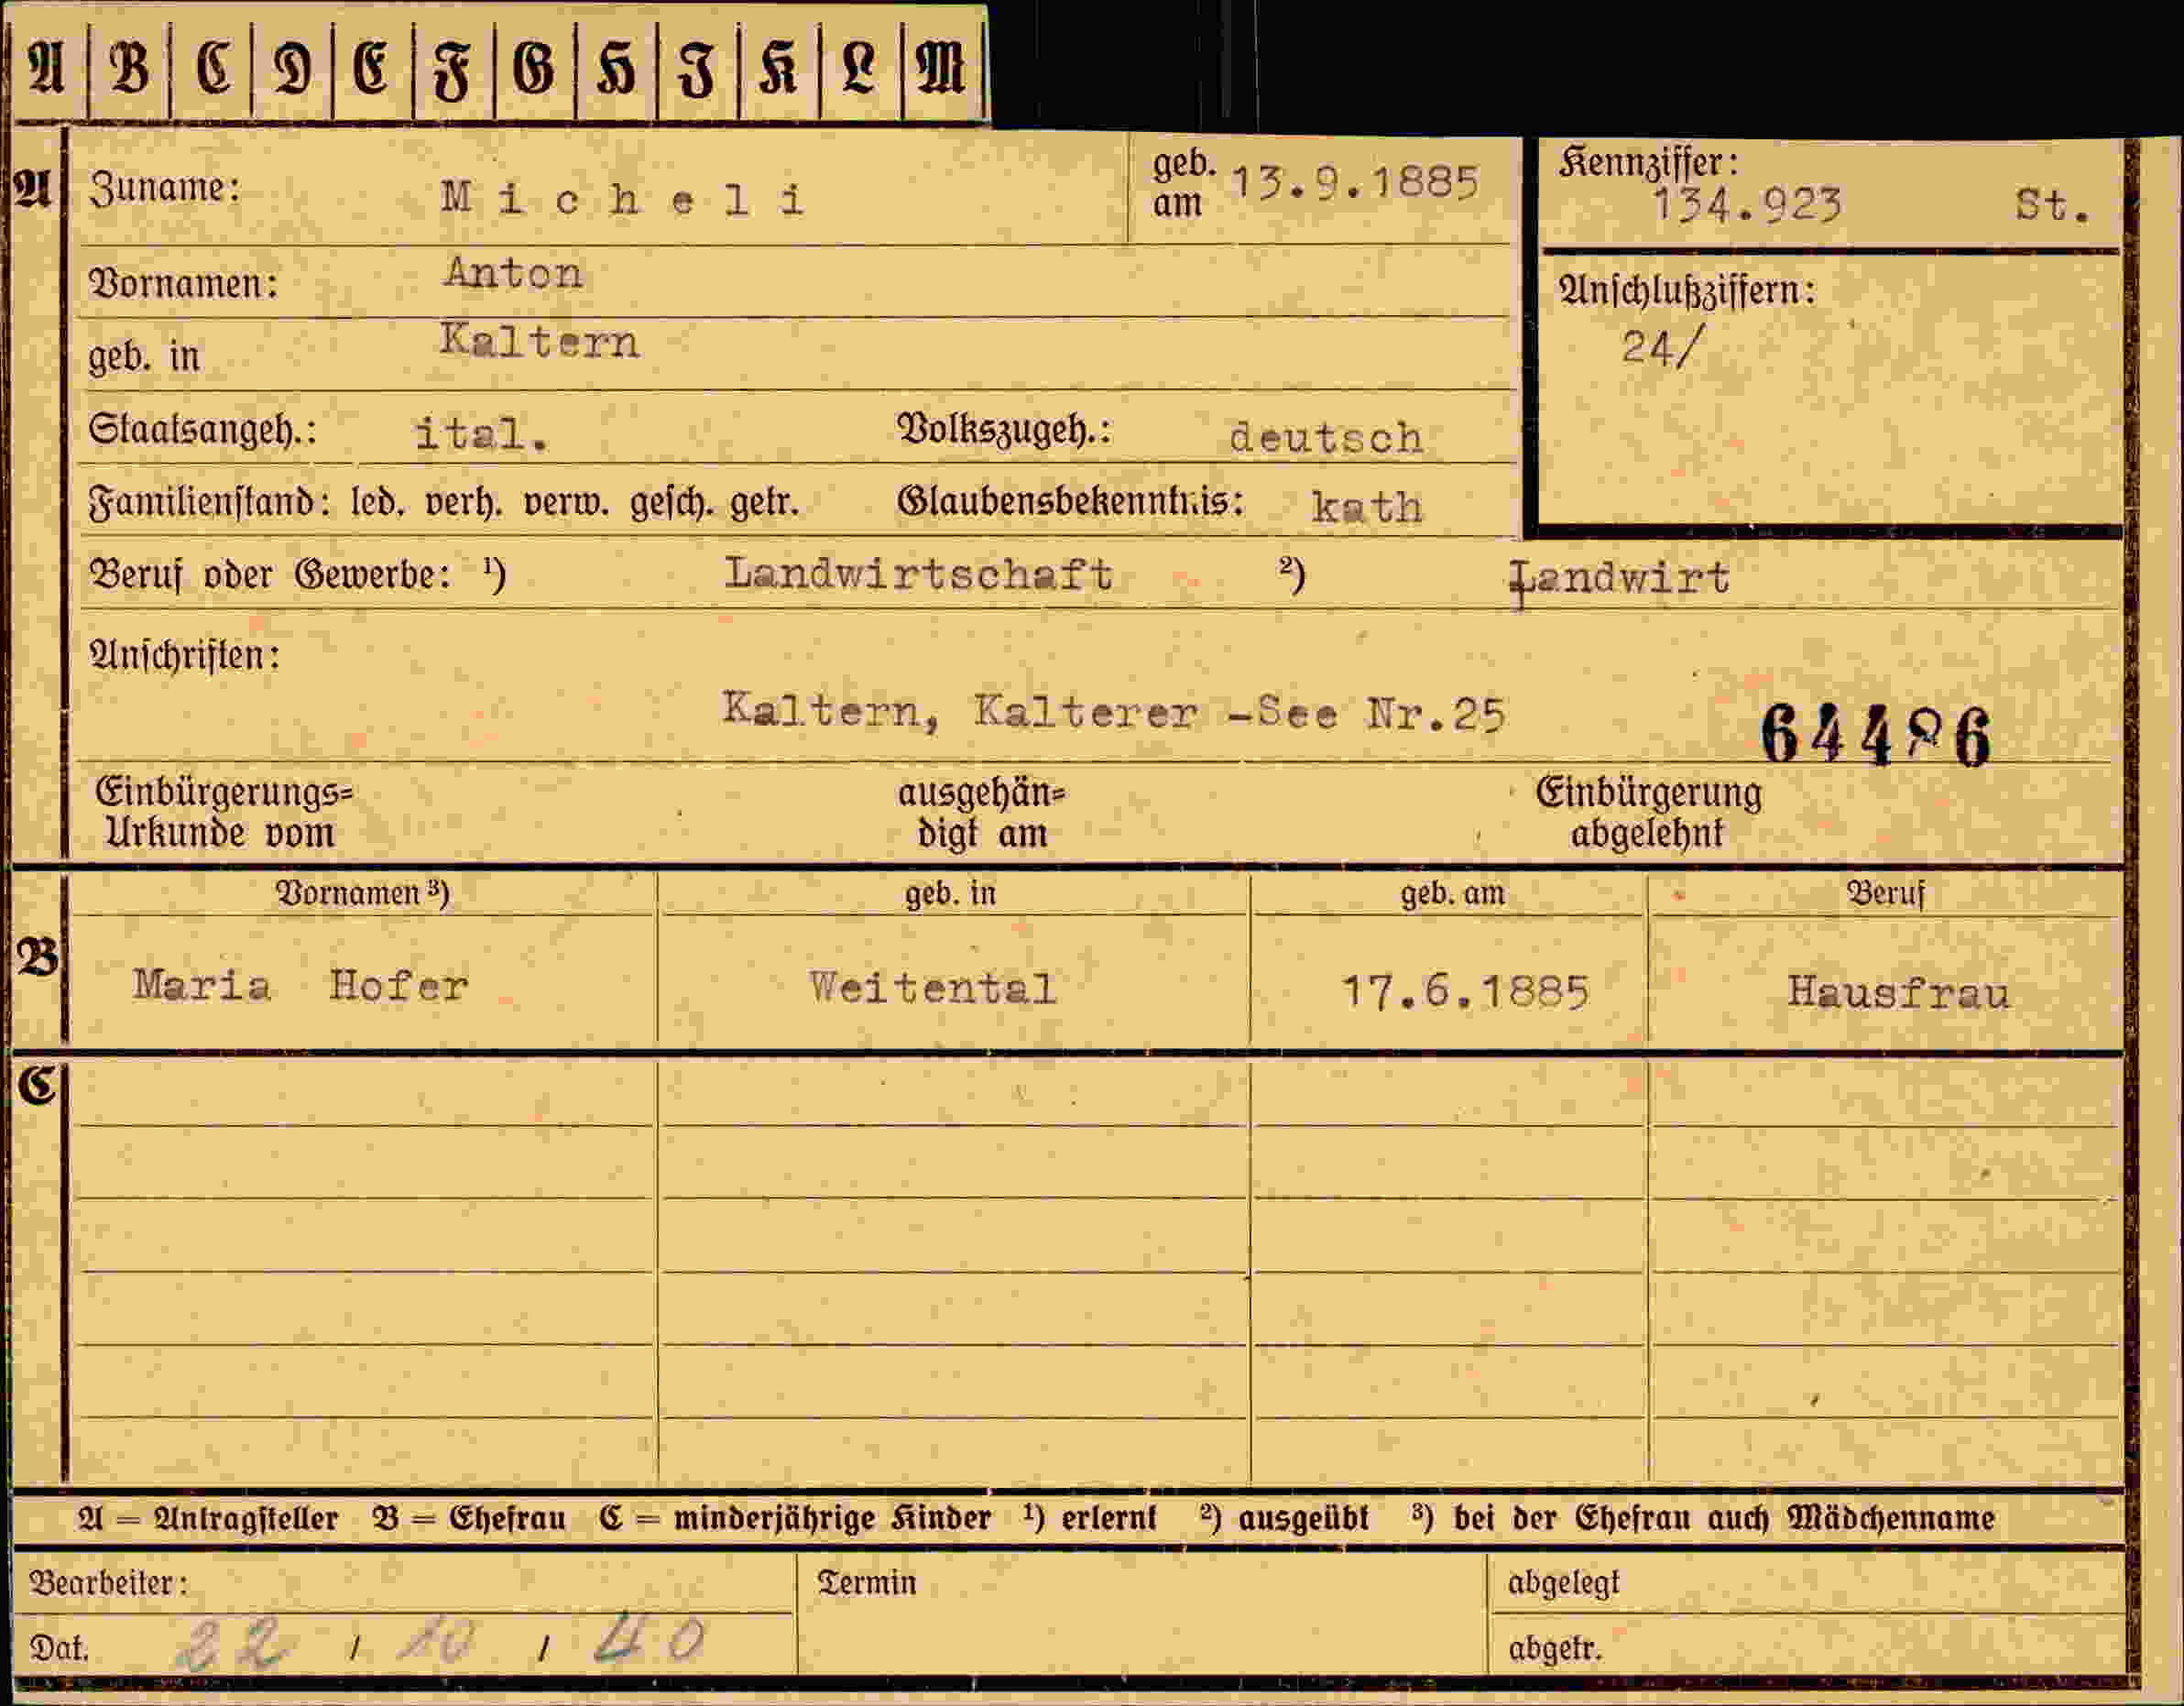 A B C D E F G H I K L M
A Zuname: Micheli geb. am 13.9.1885 Kennziffer: 134.923 St.
Vornamen: Anton
Anschlußziffern: 24/
geb. in Kaltern
Staatsangeh.: ital. Volkszugeh.: deutsch
Familienstand: led. verh. verw. gesch. getr. Glaubensbekenntnis: kath
Beruf oder Gewerbe: ¹) Landwirtschaft ²) Landwirt
Anschriften:
Kaltern, Kalterer -See Nr.25
Einbürgerungs=
Urkunde vom
ausgehän=
digt am
Einbürgerung
abgelehnt
Vornamen ³) geb. in geb. am Beruf
B Maria Hofer Weitental 17.6.1885 Hausfrau
C
A = Antragsteller B = Ehefrau C = minderjährige Kinder ¹) erlernt ²) ausgeübt ³) bei der Ehefrau auch Mädchenname
Bearbeiter: Termin abgelegt
Dat. 22 / 10 / 40 abgetr.